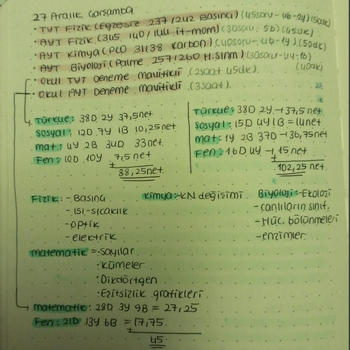 27 Aralık Çarşamba
• TYT Fizik (Egzersiz 237/242 Basınç) (45soru-4b-2y) (50dk)
• AYT Fizik (365 140/144 it-mom) (30soru, 5b) (45dk)
• AYT Kimya (PLE 31138 Karbon) (40soru-4b-1y) (50dk)
• AYT Biyoloji (Palme 257/260 H.sinir)
• Okul TYT Deneme mavitikli (2saat 45dk).
• Okul AYT Deneme mavitikli (3saat).
Türkçe: 38D 2Y 37,5net
Sosyal: 12D 7Y 1B 10,25net
mat: 4Y 2B 34D 33net
Fen: 10D 10Y 7,5net
+
88,25net
Türkçe: 38D 2Y-137,5net
Sosyal: 15D 4Y 1B=14net
mat: 1Y 2B 37D-136,75net
Fen: 16D 4Y-15net
+
102,25net
Fizik: -Basınç
-ısı-sıcaklık
-optik
-elektrik
Kimya: -KN değişimi
Biyoloji: -Ekoloji
-canlıların sınıf.
-Hüc. bölünmeleri
-enzimler
matematik=•Sayılar
•Kümeler
•Dikdörtgen
•Eşitsizlik grafikleri
matematik: 28D 3Y 9B = 27,25
Fen: 21D 13Y 6B = 17,75
+
45